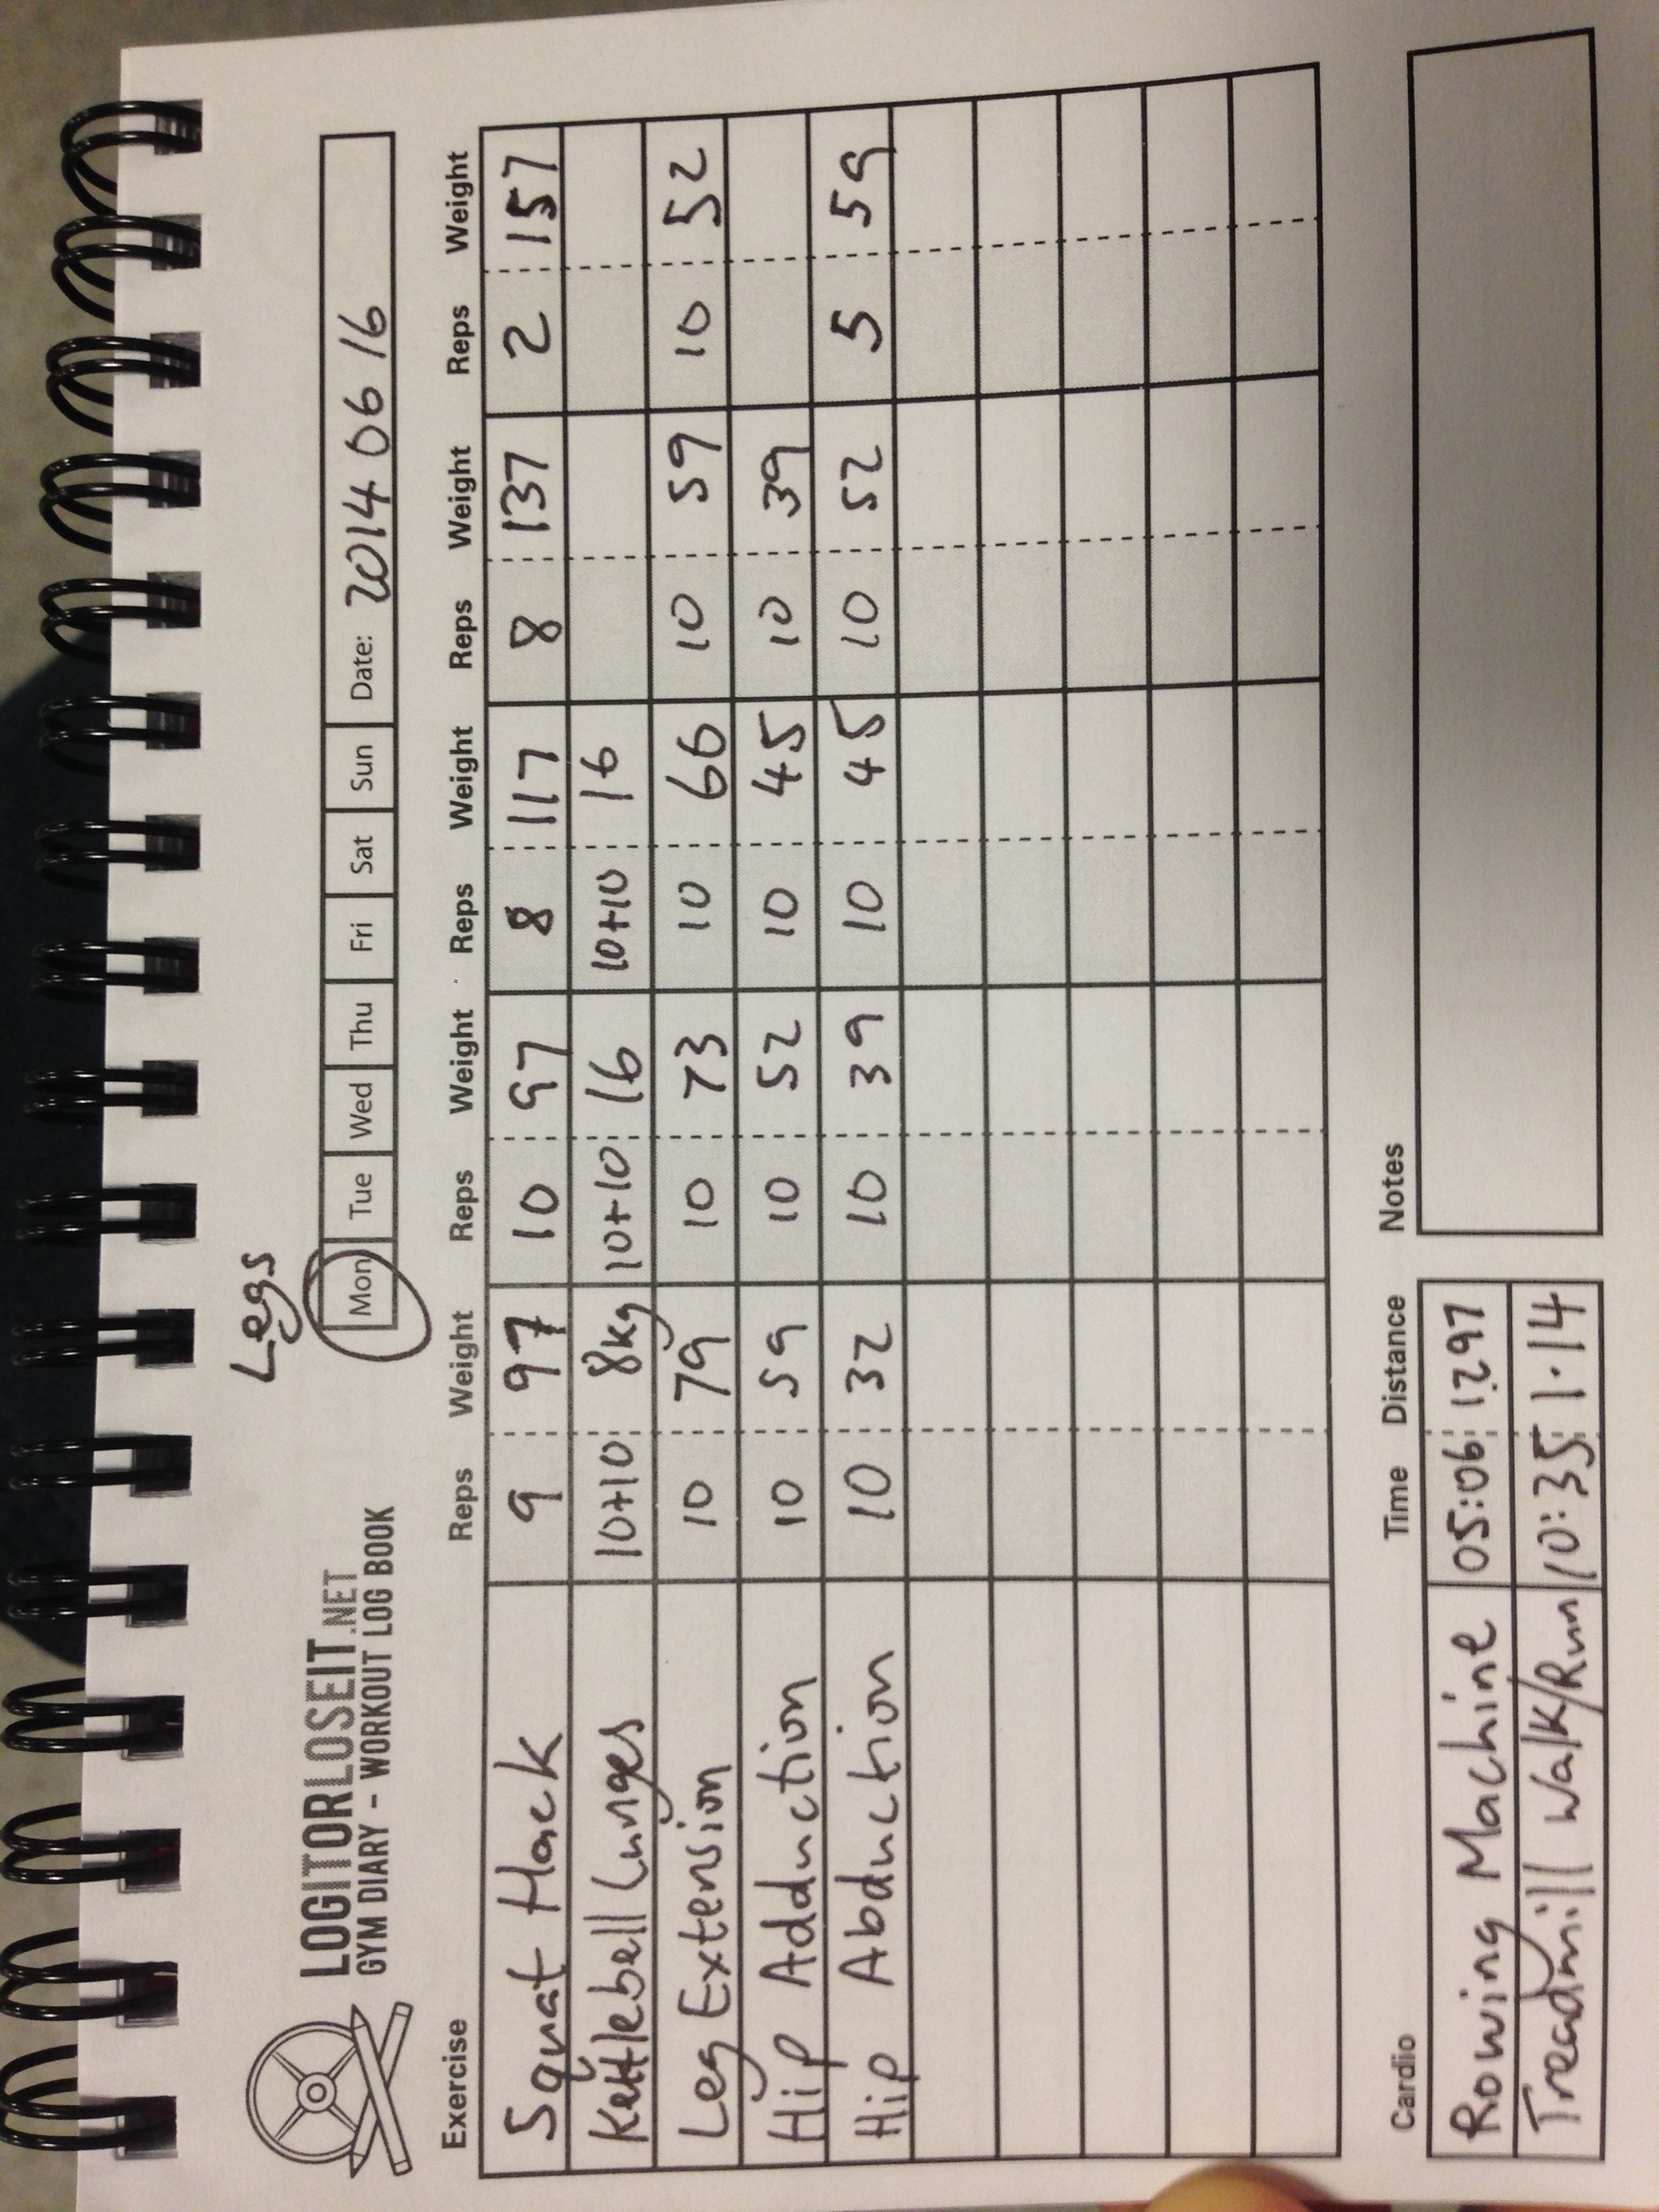 Legs
LOGITORLOSEIT.NET
GYM DIARY - WORKOUT LOG BOOK
Mon Tue Wed Thu Fri Sat Sun Date: 2014 06 16
Exercise Reps Weight Reps Weight Reps Weight Reps Weight Reps Weight
Squat Hack 9 97 10 97 8 117 8 137 2 157
Kettlebell Lunges 10+10 8kg 10+10 16 10+10 16
Leg Extension 10 79 10 73 10 66 10 59 10 52
Hip Adduction 10 59 10 52 10 45 10 39
Hip Abduction 10 32 10 39 10 45 10 52 5 59
Cardio Time Distance Notes
Rowing Machine 05:06 1.297
Treadmill Walk/Run 10:35 1.14